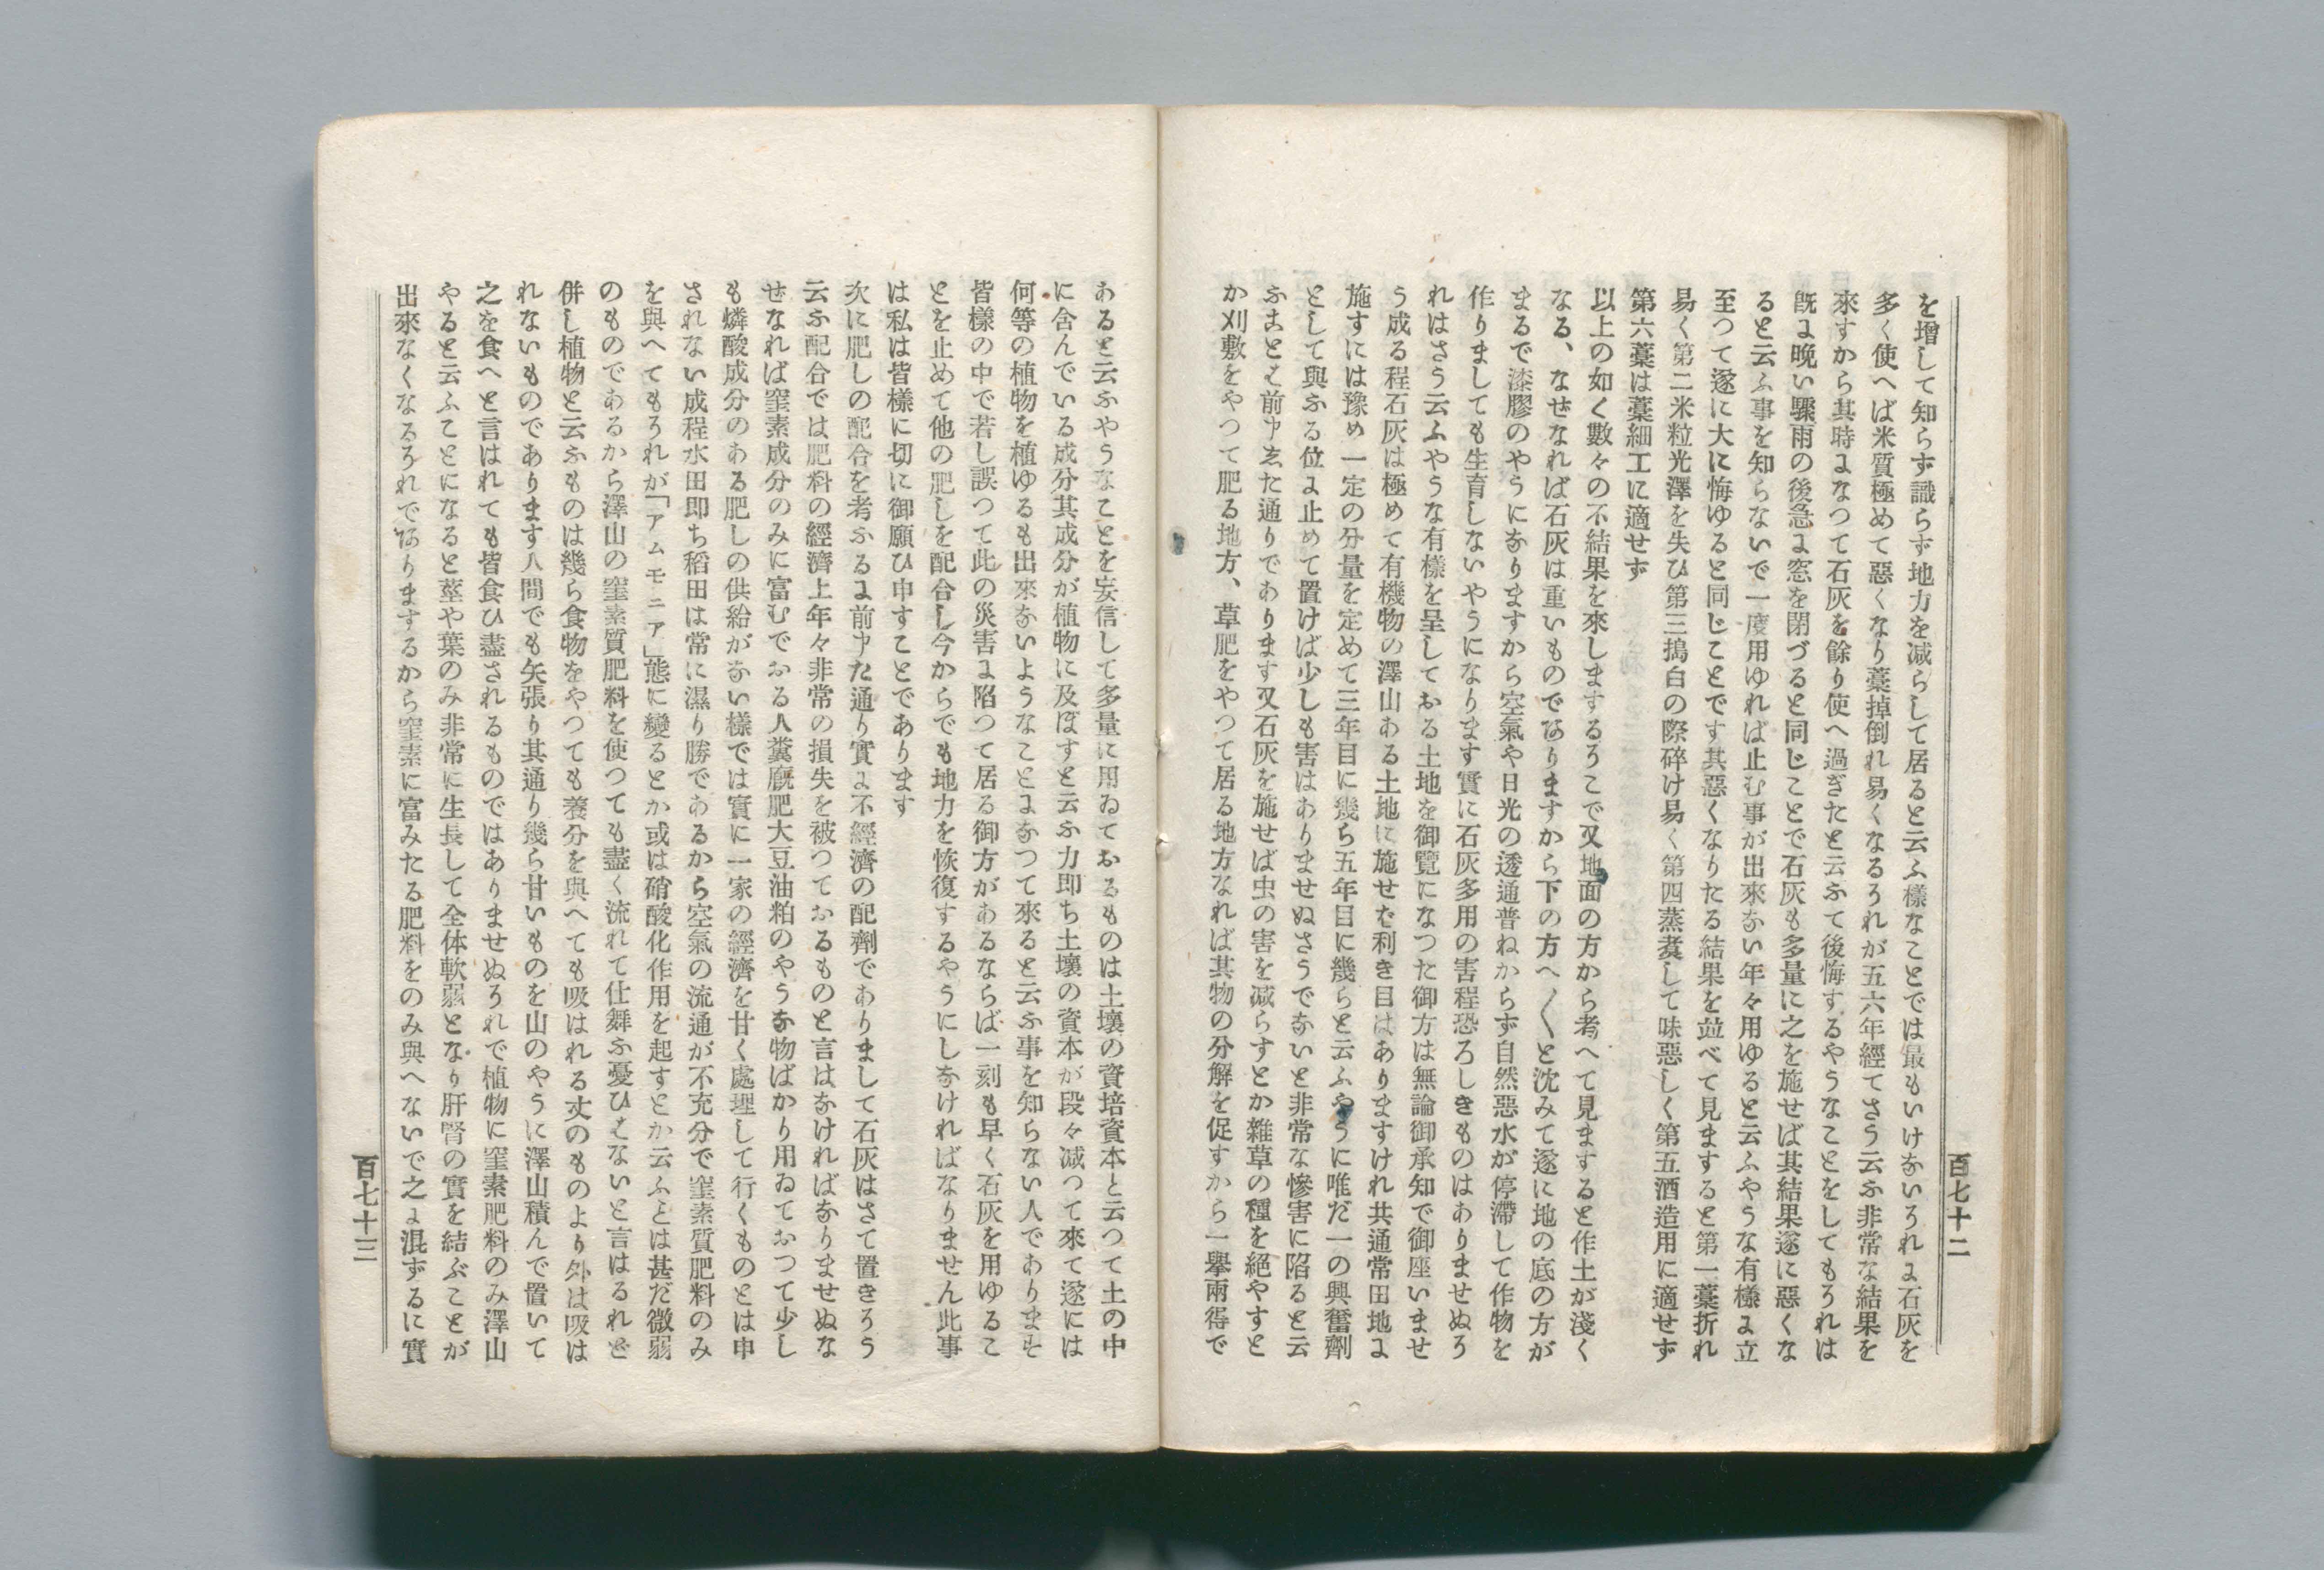 百七十二
を增して知らず識らず地力を减らして居ると云ふ樣なことでは最もいけないそれに石灰を
多く使へば米質極めて惡くなり藁掉倒れ易くなるそれが五六年經てさう云ふ非常な結果を
來すから其時になつて石灰を餘り使へ過ぎたと云ふて後悔するやうなことをしてもそれは
旣に晩い驟雨の後急に窓を閉づると同じことで石灰も多量に之を施せば其結果遂に惡くな
ると云ふ事を知らないで一度用ゆれば止む事が出來ない年々用ゆると云ふやうな有樣に立
至つて遂に大に悔ゆると同じことです其惡くなりたる結果を並べて見ますると第一藁折れ
易く第二米粒光澤を失ひ第三搗白の際碎け易く第四蒸煑して味惡しく第五酒造用に適せず
第六藁は藁細工に適せず
以上の如く數々の不結果を來しまするそこで又地面の方から考へて見ますると作土が淺く
なる、なぜなれば石灰は重いものでありますから下の方へ〱と沈みて遂に地の底の方が
まるで漆膠のやうになりますから空氣や日光の透通普ねからず自然惡水が停滯して作物を
作りましても生育しないやうになります實に石灰多用の害程恐ろしきものはありませぬそ
れはさう云ふやうな有樣を呈しておる土地を御覽になつた御方は無論御承知で御座いませ
う成る程石灰は極めて有機物の澤山ある土地に施せは利き目はありますけれ共通常田地に
施すには豫め一定の分量を定めて三年目に幾ら五年目に幾らと云ふやうに唯だ一の興奮劑
として與ふる位に止めて置けば少しも害はありませぬさうでないと非常な慘害に陷ると云
ふことは前申した通りであります又石灰を施せば虫の害を减らすとか雜草の種を絶やすと
か刈敷をやつて肥る地方、草肥をやつて居る地方なれば其物の分解を促すから一擧兩得で
あると云ふやうなことを妄信して多量に用ゐておるものは土壤の資培資本と云つて土の中
に含んでいる成分其成分が植物に及ぼすと云ふ力即ち土壤の資本が段々减つて來て遂には
何等の植物を植ゆるも出來ないようなことになつて來ると云ふ事を知らない人でありませ
皆樣の中で若し誤つて此の災害に陷つて居る御方があるならば一刻も早く石灰を用ゆるこ
とを止めて他の肥しを配合し今からでも地力を恢復するやうにしなければなりません此事
は私は皆樣に切に御願ひ申すことであります
次に肥しの配合を考ふるに前申た通り實に不經濟の配劑でありまして石灰はさて置きそう
云ふ配合では肥料の經濟上年々非常の損失を被つておるものと言はなければなりませぬな
ぜなれば窒素成分のみに富むでおる人糞廐肥大豆油粕のやうな物ばかり用ゐておつて少し
も燐酸成分のある肥しの供給がない樣では實に一家の經濟を甘く處理して行くものとは申
されない成程水田即ち稻田は常に濕り勝であるから空氣の流通が不充分で窒素質肥料のみ
を與へてもそれが「アムモニア」態に變るとか或は硝酸化作用を起すとか云ふことは甚だ微弱
のものであるから澤山の窒素質肥料を使つても盡く流れて仕舞ふ憂ひはないと言はるれど
併し植物と云ふものは幾ら食物をやつても養分を與へても吸はれる丈のものより外は吸は
れないものであります人間でも矢張り其通り幾ら甘いものを山のやうに澤山積んで置いて
之を食へと言はれても皆食ひ盡されるものではありませぬそれで植物に窒素肥料のみ澤山
やると云ふことになると莖や葉のみ非常に生長して全体軟弱となり肝腎の實を結ぶことが
出來なくなるそれでありまするから窒素に富みたる肥料をのみ與へないで之に混ずるに實
百七十三